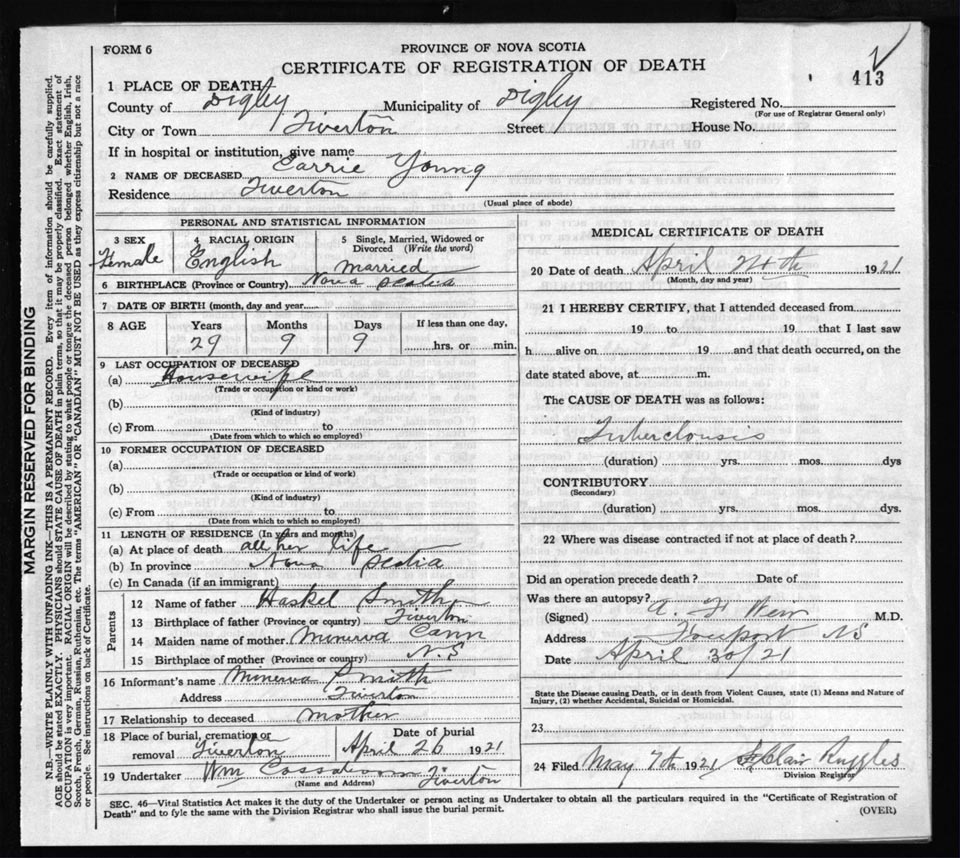 FORM 6
PROVINCE OF NOVA SCOTIA
CERTIFICATE OF REGISTRATION OF DEATH
413
1 PLACE OF DEATH
County of Digby Municipality of Digby Registered No.
(For use of Registrar General only)
City or Town Tiverton Street House No.
If in hospital or institution, give name
2 NAME OF DECEASED Carrie Young
Residence Tiverton
(Usual place of abode)
PERSONAL AND STATISTICAL INFORMATION
3 SEX 4 RACIAL ORIGIN 5 Single, Married, Widowed or Divorced (Write the word)
Female English Married
6 BIRTHPLACE (Province or Country) Nova Scotia
7 DATE OF BIRTH (month, day and year)
8 AGE Years Months Days If less than one day,
29 9 9 hrs. or min.
9 LAST OCCUPATION OF DECEASED
(a) Housewife
(Trade or occupation or kind or work)
(b)
(Kind of industry)
(c) From to
(Date from which to which so employed)
10 FORMER OCCUPATION OF DECEASED
(a)
(Trade or occupation or kind of work)
(b)
(Kind of industry)
(c) From to
(Date from which to which so employed)
11 LENGTH OF RESIDENCE (In years and months)
(a) At place of death all her life
(b) In province Nova Scotia
(c) In Canada (if an immigrant)
Parents
12 Name of father Haskel Smith
13 Birthplace of father (Province or country) Tiverton
14 Maiden name of mother Minerva Cann
15 Birthplace of mother (Province or country) N.S
16 Informant's name Minerva Smith
Address Tiverton
17 Relationship to deceased Mother
18 Place of burial, cremation or removal Tiverton Date of burial April 26 1921
19 Undertaker Wm Tiverton
(Name and Address)
MEDICAL CERTIFICATE OF DEATH
20 Date of death April 24th 1921
(Month, day and year)
21 I HEREBY CERTIFY, that I attended deceased from
19 to 19 , that I last saw
h alive on 19 and that death occurred, on the
date stated above, at m.
The CAUSE OF DEATH was as follows:
Tuberclousis
(duration) yrs. mos. dys
CONTRIBUTORY
(Secondary)
(duration) yrs. mos. dys.
22 Where was disease contracted if not at place of death?
Did an operation precede death? Date of
Was there an autopsy?
(Signed) A. F Weir M.D.
Address Freeport NS
Date April 30/21
State the Disease causing Death, or in death from Violent Causes, state (1) Means and Nature of
Injury, (2) whether Accidental, Suicidal or Homicidal.
23
24 Filed May 7th 1921 St Clair Ruggles
Division Registrar
SEC. 46—Vital Statistics Act makes it the duty of the Undertaker or person acting as Undertaker to obtain all the particulars required in the "Certificate of Registration of
Death" and to fyle the same with the Division Registrar who shall issue the burial permit.
(OVER)
MARGIN RESERVED FOR BINDING
N.B.—WRITE PLAINLY WITH UNFADING INK—THIS IS A PERMANENT RECORD. Every item of information should be carefully supplied.
AGE should be stated EXACTLY. PHYSICIANS should STATE CAUSE OF DEATH in plain terms, so that it may be properly classified. Exact statement of
OCCUPATION is very important. RACIAL ORIGIN will be described by stating to what people or tongue the deceased person belonged whether English, Irish,
Scotch, French, German, Russian, Ruthenian, etc. The terms "AMERICAN" OR "CANADIAN" MUST NOT BE USED as they express citizenship but not a race
or people. See instructions on back of Certificate.